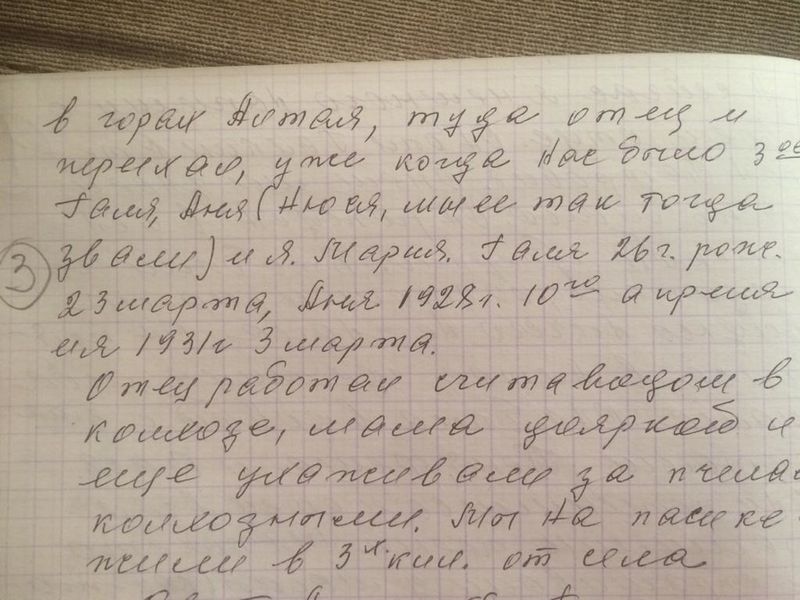 в горах Алтая, туда отец и
переехал, уже когда нас было 3ое
Галя, Аня (Нюся, мы ее так тогда
звали) и я. Мария. Галя 26 г. рож.
3
23 марта, Аня 1928 г. 10го апреля
и я 1931 г 3 марта.
Отец работал считаводом в
колхозе, мама дояркой и
еще ухаживали за пчела
колхозными. Мы на пасике
жили в 3х кил. от села